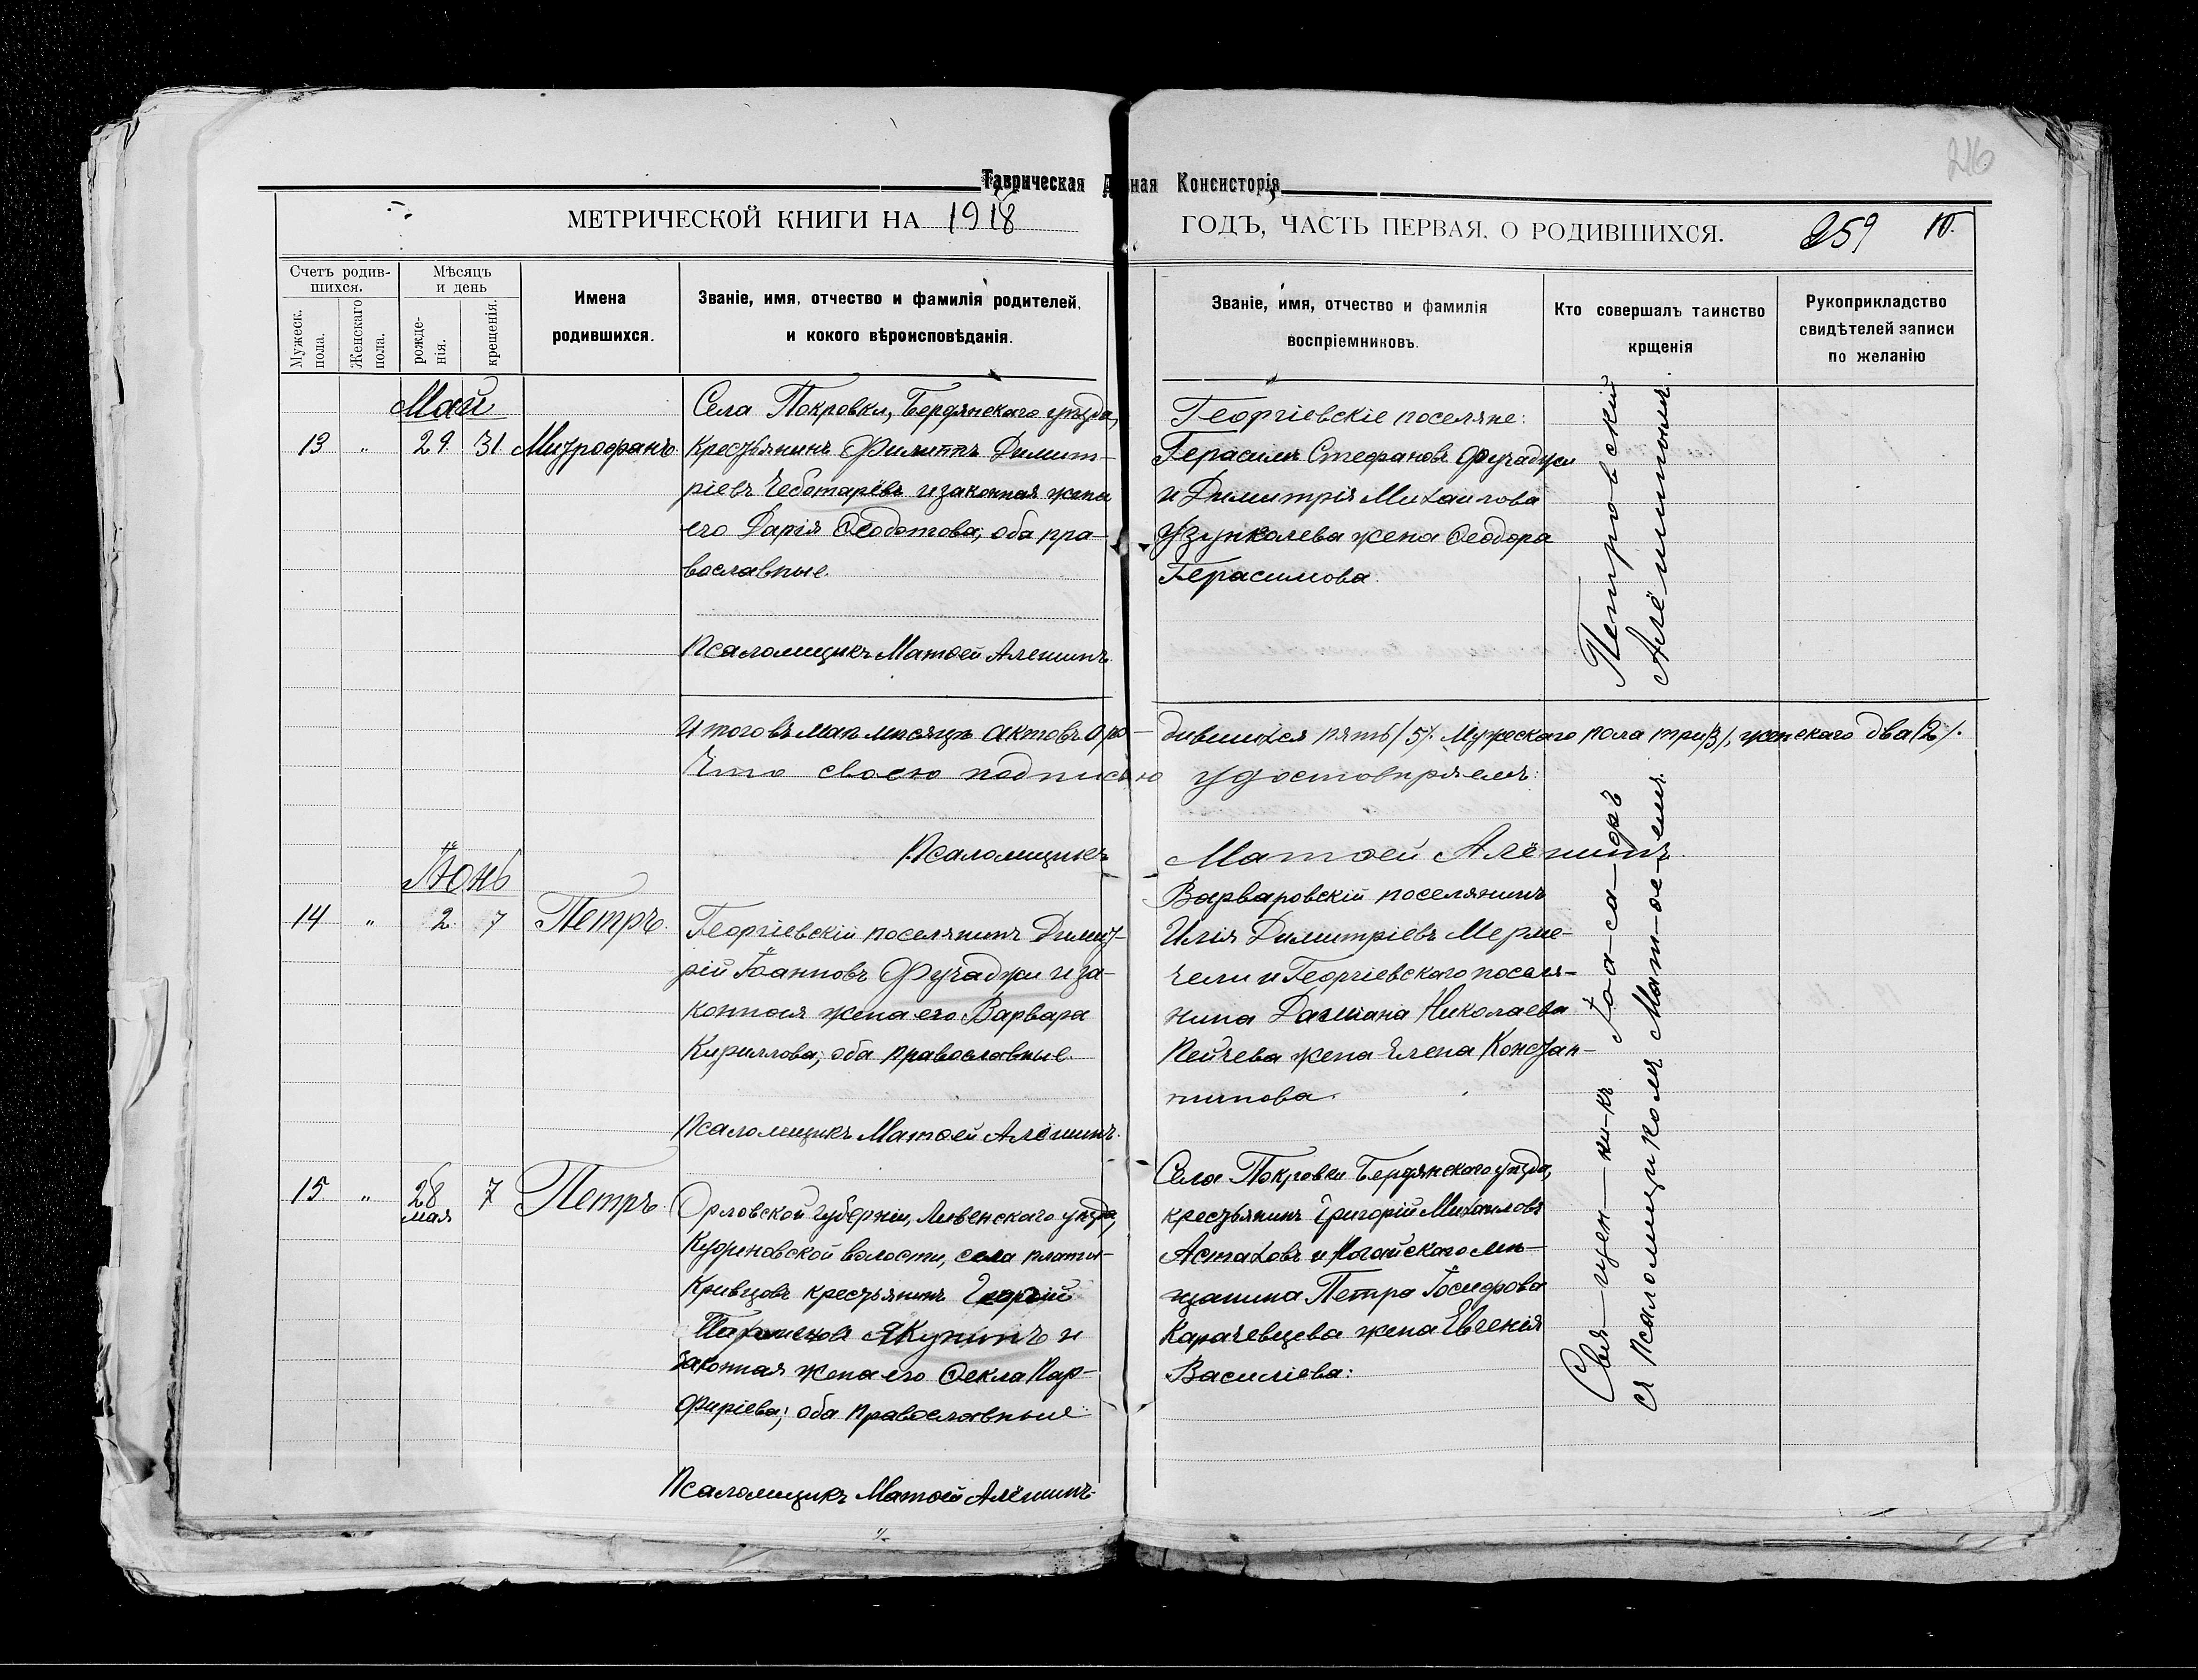 216
Таврическая Д ная Консисторія
МЕТРИЧЕСКОЙ КНИГИ НА 1918
ГОДЪ, ЧАСТЬ ПЕРВАЯ, О РОДИВШИХСЯ.
259
10.
Счетъ родив-
шихся.
Мужеск.
пола.
Женскаго
пола.
Мѣсяцъ
и день
рожде-
нія.
крещенія.
Имена
родившихся.
Званіе, имя, отчество и фамилія родителей,
и кокого вѣроисповѣданія.
Званіе, имя, отчество и фамилія
воспріемниковъ.
Кто совершалъ таинство
крщенія
Рукоприкладство
свидѣтелей записи
по желанію
Май
13 " 29 31 Митрофанъ
Села Покровки, Бердянскаго уѣзда,
крестьянинъ Филиппъ Димит-
ріевъ Чеботарёвъ и законная жена
его Дарія Ѳеодотова; оба пра-
вославные.
Псаломщикъ Матѳей Алёшинъ.
Георгіевскіе поселяне:
Герасимъ Стефановъ Фучаджи
и Димитрія Михаилова
Узунколева жена Ѳеодора
Герасимова.
Итого въ маѣ мѣсяцѣ актовъ о ро-
дившихся пять /5/. Мужескаго пола три /3/, женскаго два /2/.
Что своею подписью удостовѣряемъ:
Псаломщикъ Матѳей Алёшинъ.
Іюнь
14 " 2 7 Петръ.
Георгіевскій поселянинъ Димит-
рій Іоанновъ Фучаджи и за-
конная жена его Варвара
Кириллова; оба православные.
Псаломщикъ Матѳей Алёшинъ.
Варваровскій поселянинъ
Илія Димитріевъ Мерме-
чели и Георгіевскаго поселя-
нина Даміана Николаева
Пейчева жена Елена Констан-
тинова.
15 " 28 7 Петръ
мая
Орловской губерніи, Ливенскаго уѣзда,
волости, села
Кривцовъ крестьянинъ Георгій
Якунинъ и
законная жена его Ѳекла Пар-
фиріева; оба православные.
Псаломщикъ Матѳей Алёшинъ.
Села Покровки Бердянскаго уѣзда,
крестьянинъ Григорій Михаиловъ
Астаховъ и Ногайскаго мѣ-
щанина Петра Іосифова
Карачевцева жена Евгенія
Василіева:
Свя-щен-ни-къ Іоа-са-фъ Петровскій
съ псаломщикомъ Мат-ѳе-емъ Алёшинымъ.